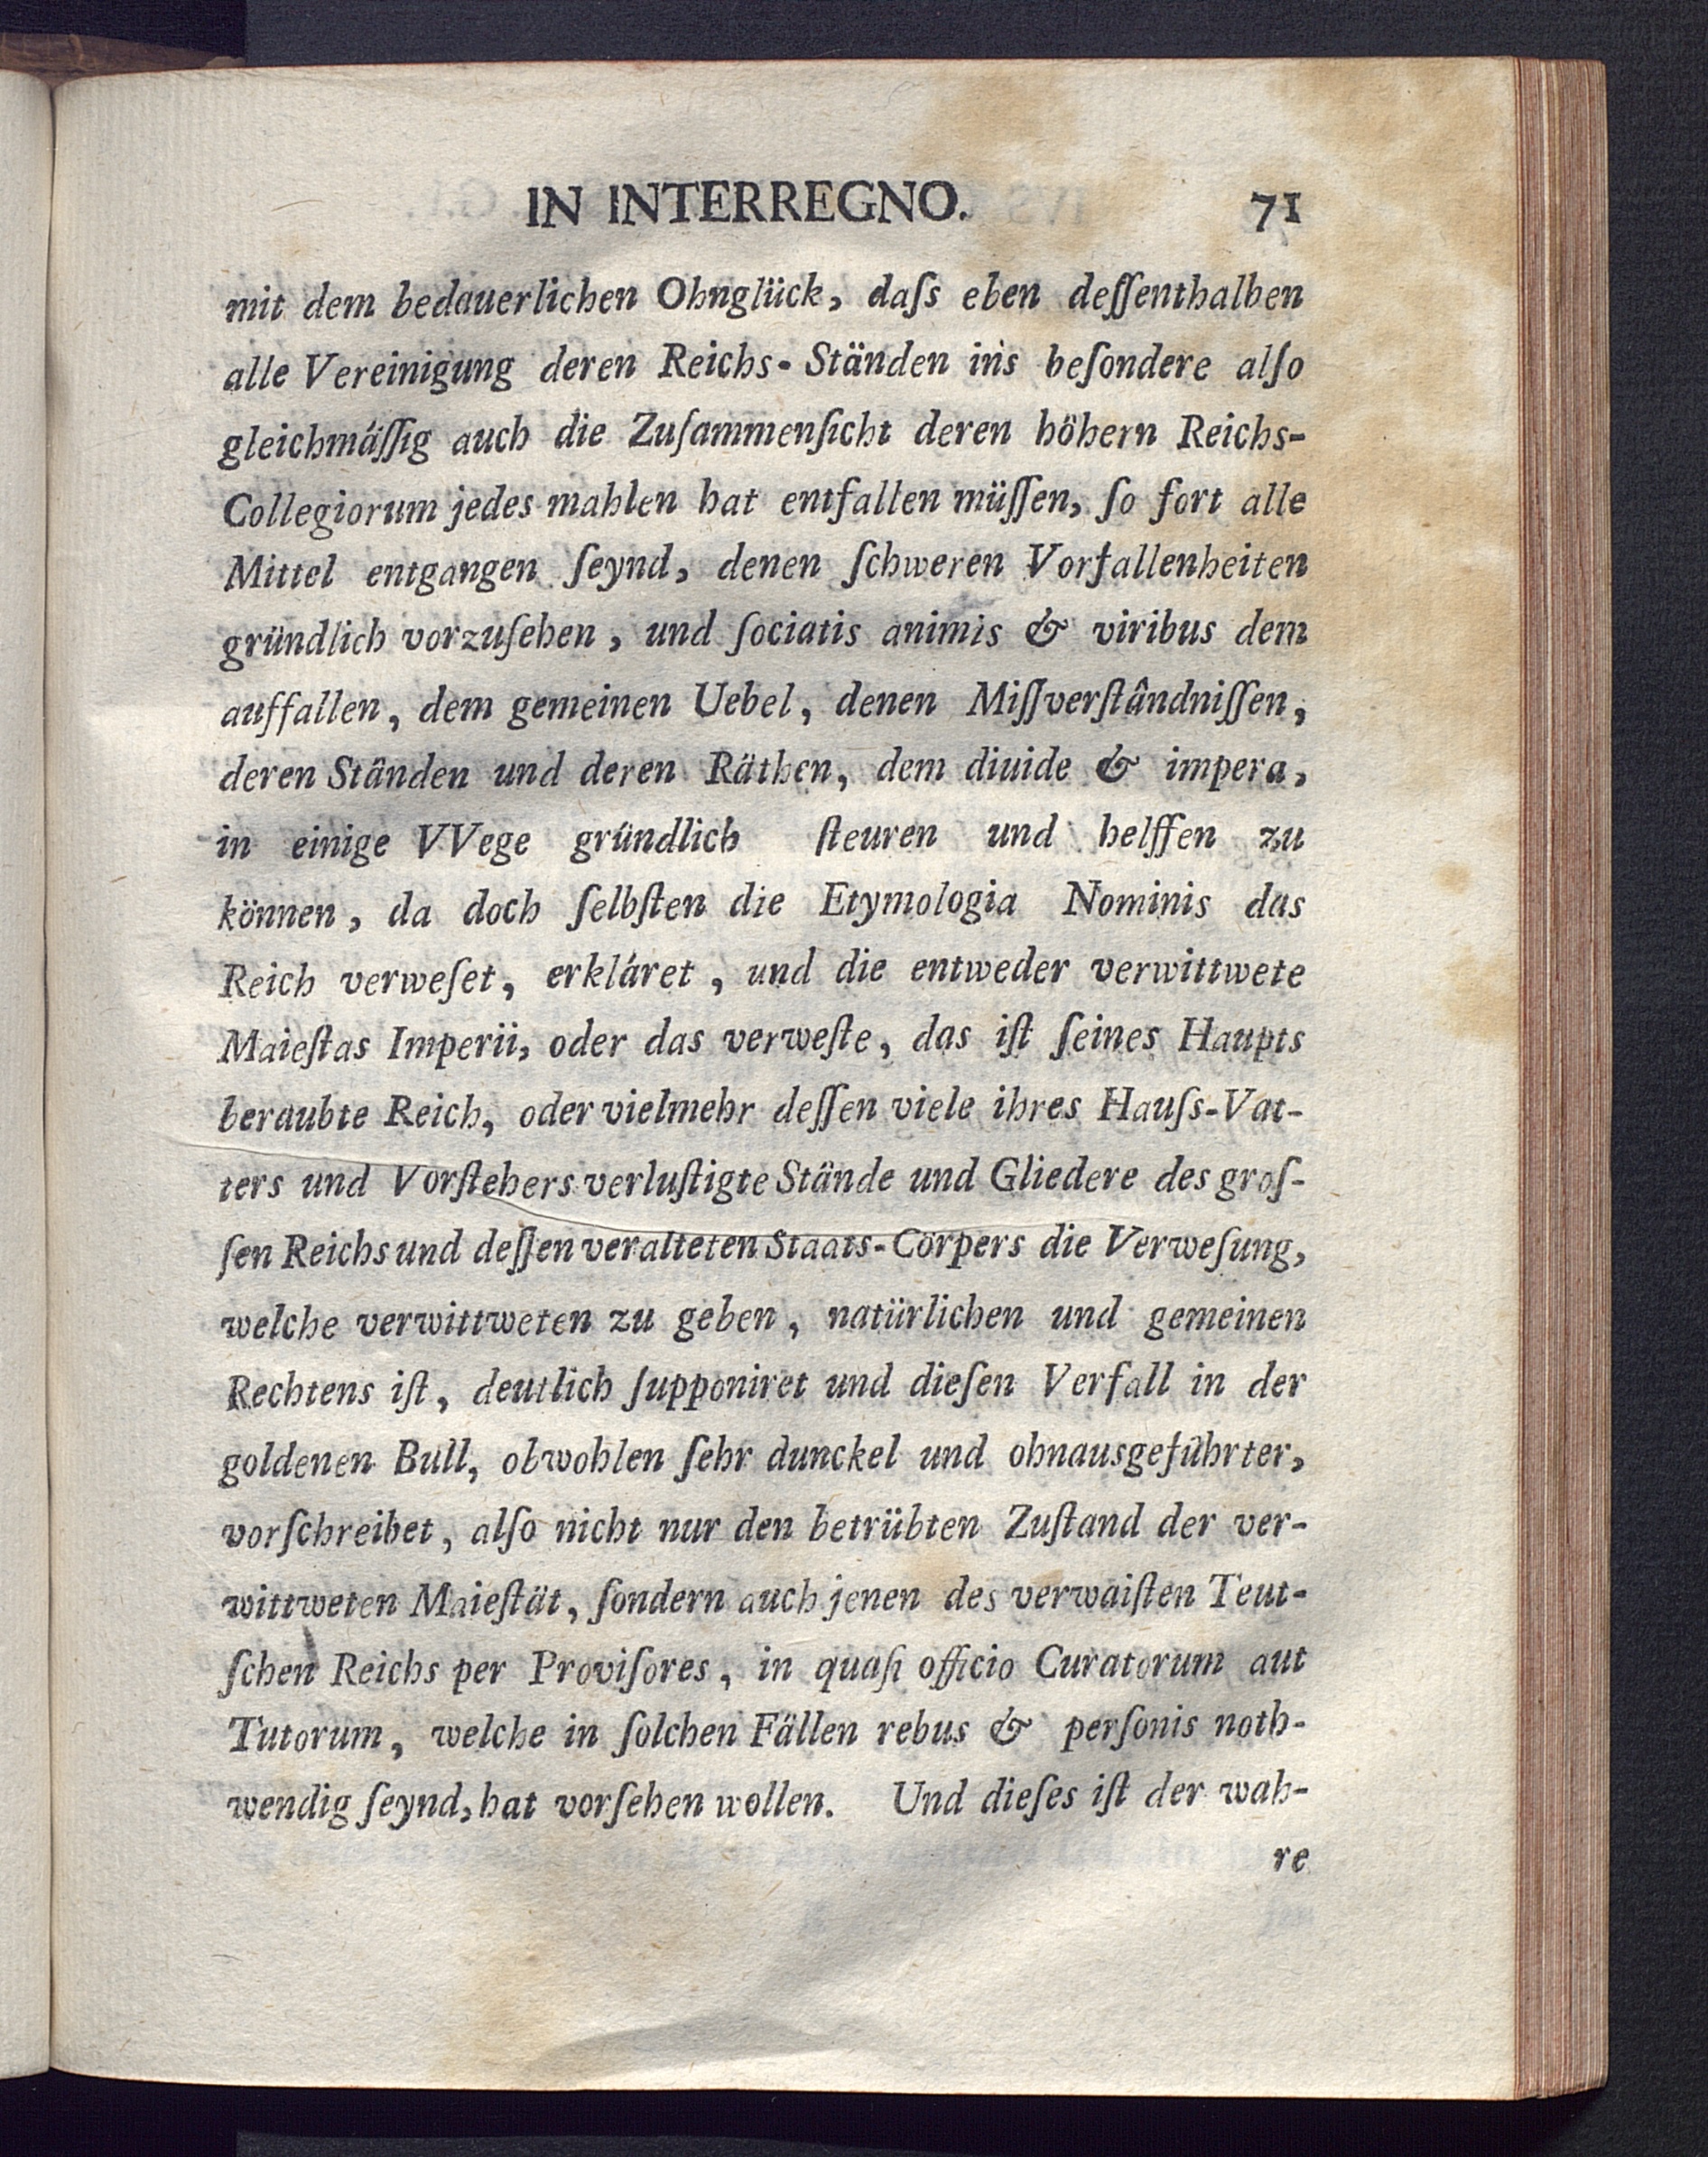 IN INTERREGNO. 71
mit dem bedauerlichen Ohnglück, daſs eben deſſenthalben
alle Vereinigung deren Reichs-Ständen ins beſondere alſo
gleichmáſſig auch die Zuſammenſicht deren höhern Reichs-
Collegiorum jedes mahlen hat entfallen müſſen, ſo fort alle
Mittel entgangen ſeynd, denen ſchweren Vorfallenheiten
gründlich vorzuſehen, und ſociatis animis & viribus dem
auffallen, dem gemeinen Uebel, denen Miſſverſtândniſſen,
deren Stânden und deren Räthen, dem diuide & impera,
in einige VVege gründlich ſteuren und helffen zu
können, da doch ſelbſten die Etymologia Nominis das
Reich verweſet, erkláret, und die entweder verwittwete
Maieſtas Imperii, oder das verweſte, das iſt ſeines Haupts
beraubte Reich, oder vielmehr deſſen viele ihres Hauſs-Vat-
ters und Vorſtehers verluſtigte Stände und Gliedere des groſ-
ſen Reichs und deſſen veralteten Staats-Cörpers die Verweſung,
welche verwittweten zu geben, natürlichen und gemeinen
Rechtens iſt, deutlich ſupponiret und dieſen Verfall in der
goldenen Bull, obwohlen ſehr dunckel und ohnausgeführter,
vorſchreibet, alſo nicht nur den betrübten Zuſtand der ver-
wittweten Maieſtät, ſondern auch jenen des verwaiſten Teut-
ſchen Reichs per Proviſores, in quaſi officio Curatorum aut
Tutorum, welche in ſolchen Fällen rebus & perſonis noth-
wendig ſeynd, hat vorſehen wollen. Und dieſes iſt der wah-
re